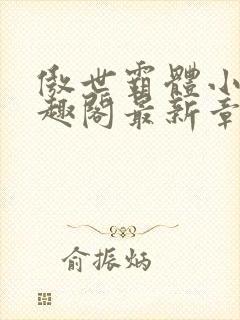 傲世霸體小
趣閣最新章
俞振炳